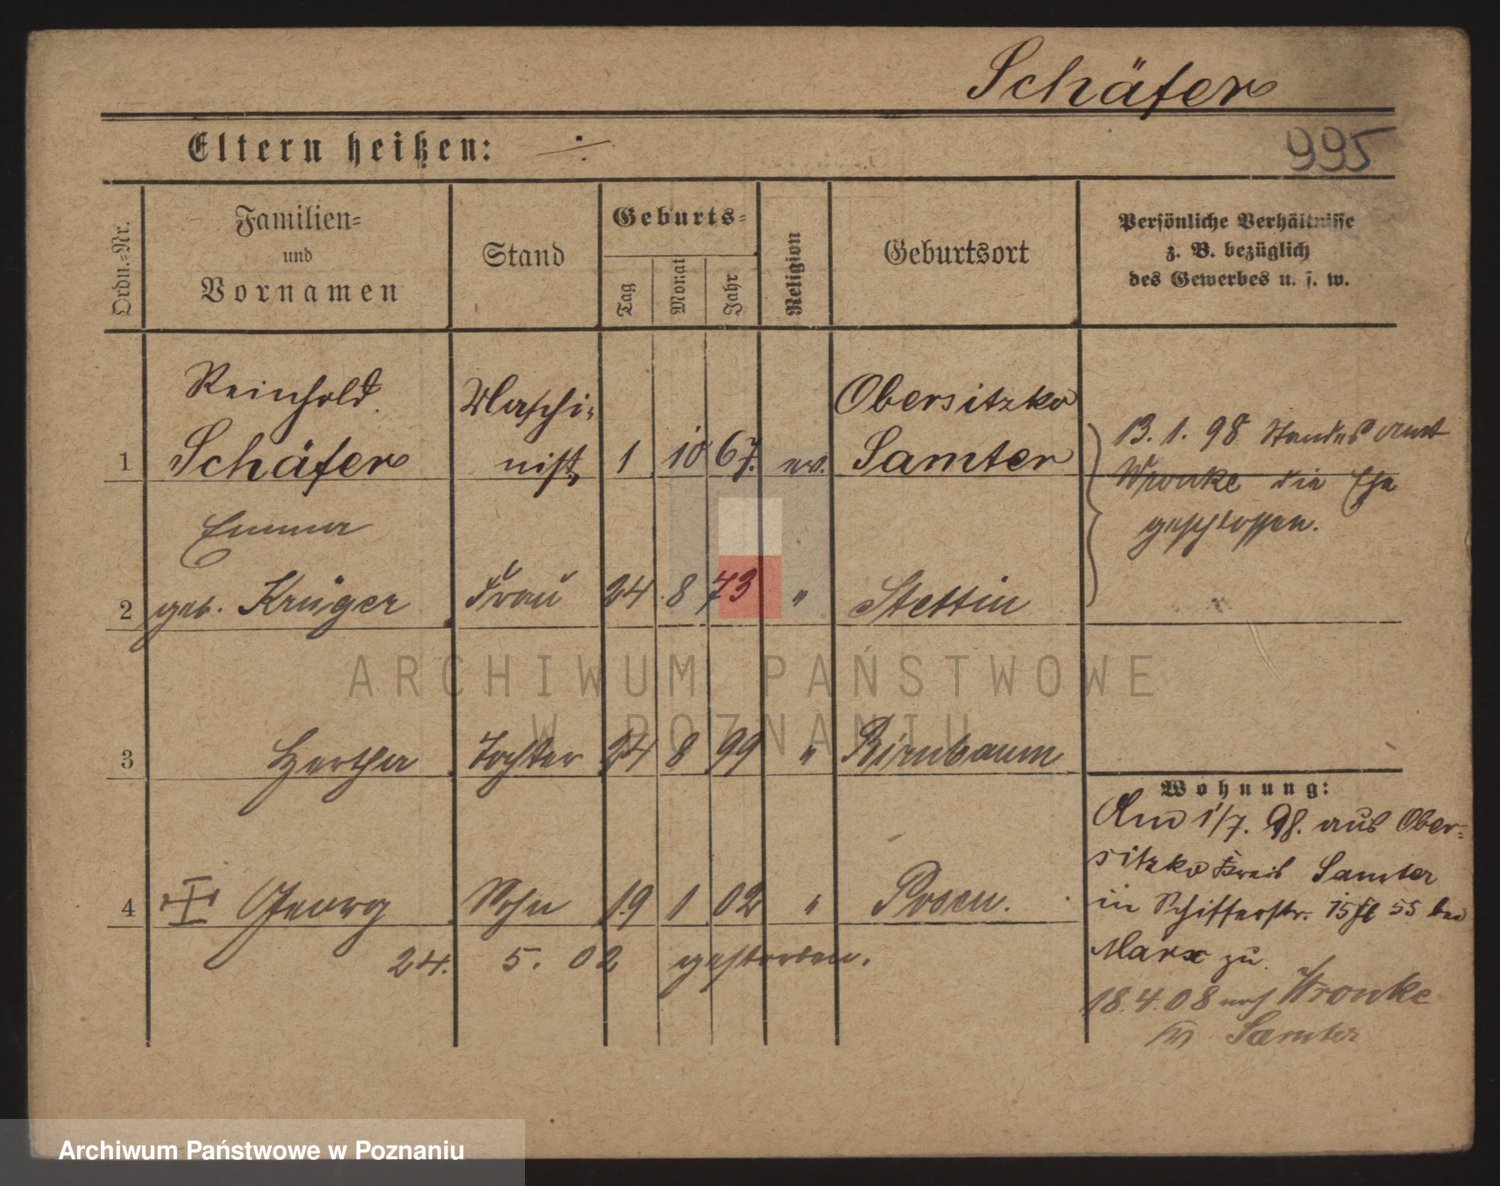 Schäfer
995
Eltern heißen: ./.
Ordn.-Nr.
Familien-
und
Vornamen
Stand
Geburts-
Tag
Monat
Jahr
Religion
Geburtsort
Persönliche Verhältnisse
z. B. bezüglich
des Gewerbes u. s. w.
Reinhold Maschi- Obersitzko
1 Schäfer nist 1 10 67. ev. Samter
13. 1. 98 Standesamt
Wronke die Ehe
geschlossen.
Emma
2 geb. Krüger Frau 24 8 73 " Stettin
3 Hertha Tochter 24 8 99 " Birnbaum
4 Georg Sohn 19 1 02 " Posen.
24. 5. 02 gestorben.
Wohnung:
Am 1/7. 98. aus Ober-
sitzko Kreis Samter
in Schifferstr. 15 55 bei
Marx zu.
18.4.08 nach Wronke
Samter
ARCHIWUM PAŃSTWOWE
W POZNANIU
Archiwum Państwowe w Poznaniu